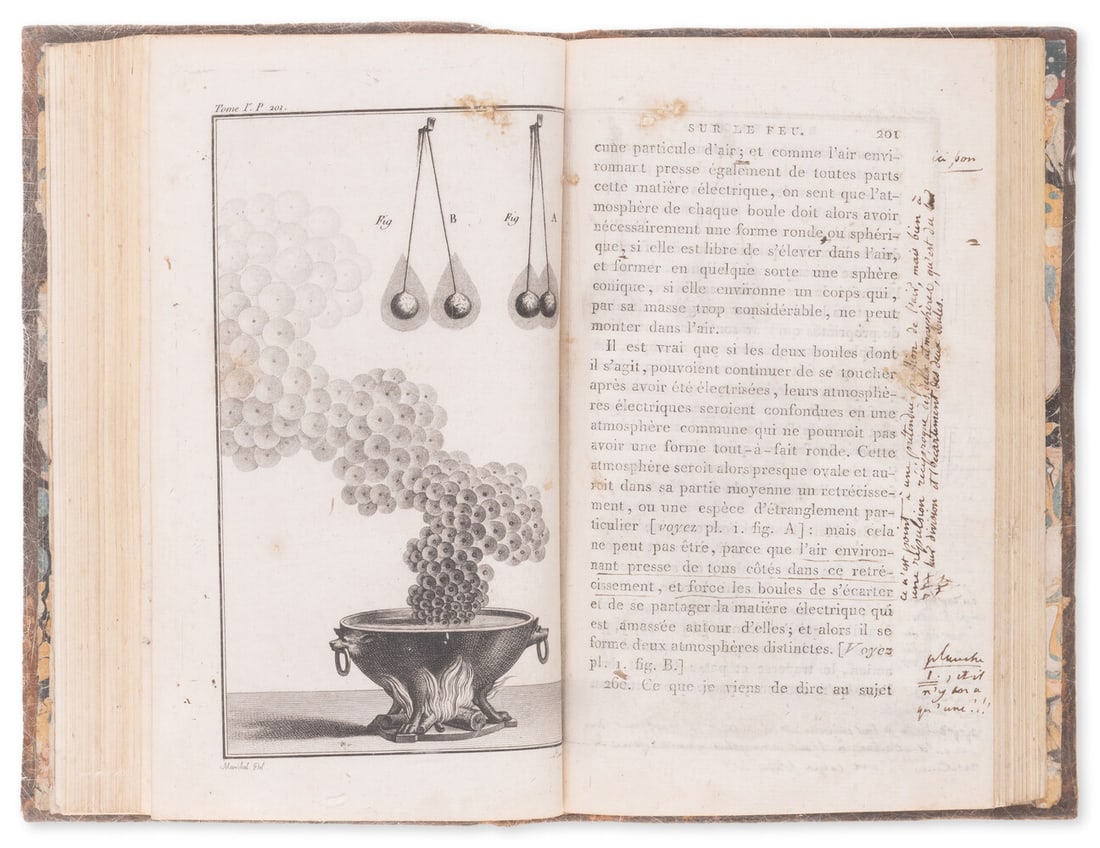 Tome Iʳ. P. 201.
Fig B Fig A
Maréchal Del
SUR LE FEU. 201
cune particule d'air; et comme l'air envi-
ronnant presse également de toutes parts
cette matière électrique, on sent que l'at-
mosphère de chaque boule doit alors avoir
nécessairement une forme ronde ou sphéri-
que, si elle est libre de s'élever dans l'air,
et former en quelque sorte une sphère
conique, si elle environne un corps qui,
par sa masse trop considérable, ne peut
monter dans l'air.
Il est vrai que si les deux boules dont
il s'agit, pouvoient continuer de se toucher
après avoir été électrisées, leurs atmosphè-
res électriques seroient confondues en une
atmosphère commune qui ne pourroit pas
avoir une forme tout-à-fait ronde. Cette
atmosphère seroit alors presque ovale et au-
roit dans sa partie moyenne un retrécisse-
ment, ou une espèce d'étranglement par-
ticulier [voyez pl. 1. fig. A]: mais cela
ne peut pas être, parce que l'air environ-
nant presse de tous côtés dans ce retré-
cissement, et force les boules de s'écarter
et de se partager la matière électrique qui
est amassée autour d'elles; et alors il se
forme deux atmosphères distinctes. [Voyez
pl. 1. fig. B.]
260. Ce que je viens de dire au sujet
ce n'est point à une prétendue du fluide, mais bien à
une répulsion réciproque des atmosphères, qu'est du
leur division et l'écartement des deux boules.
planche
1. , et il
n'y en a
qu'une!!!